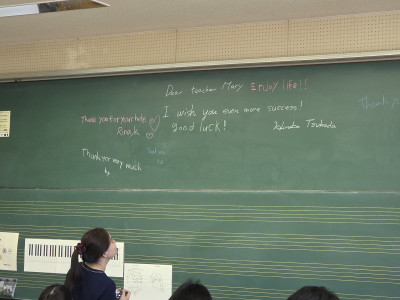 Dear teacher Mary Enjoy life!!
I wish you even more success!
good luck!
Thank you for your help.
Thank you very much
Thank y